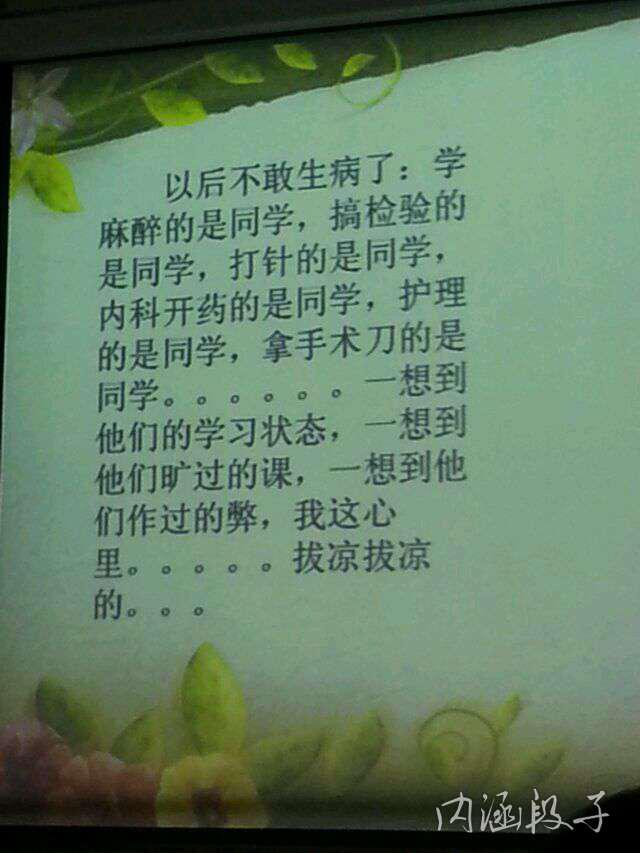 以后不敢生病了：学
麻醉的是同学，搞检验的
是同学，打针的是同学，
内科开药的是同学，护理
的是同学，拿手术刀的是
同学。。。。。。一想到
他们的学习状态，一想到
他们旷过的课，一想到他
们作过的弊，我这心
里。。。。。拔凉拔凉
的。。。
内涵段子